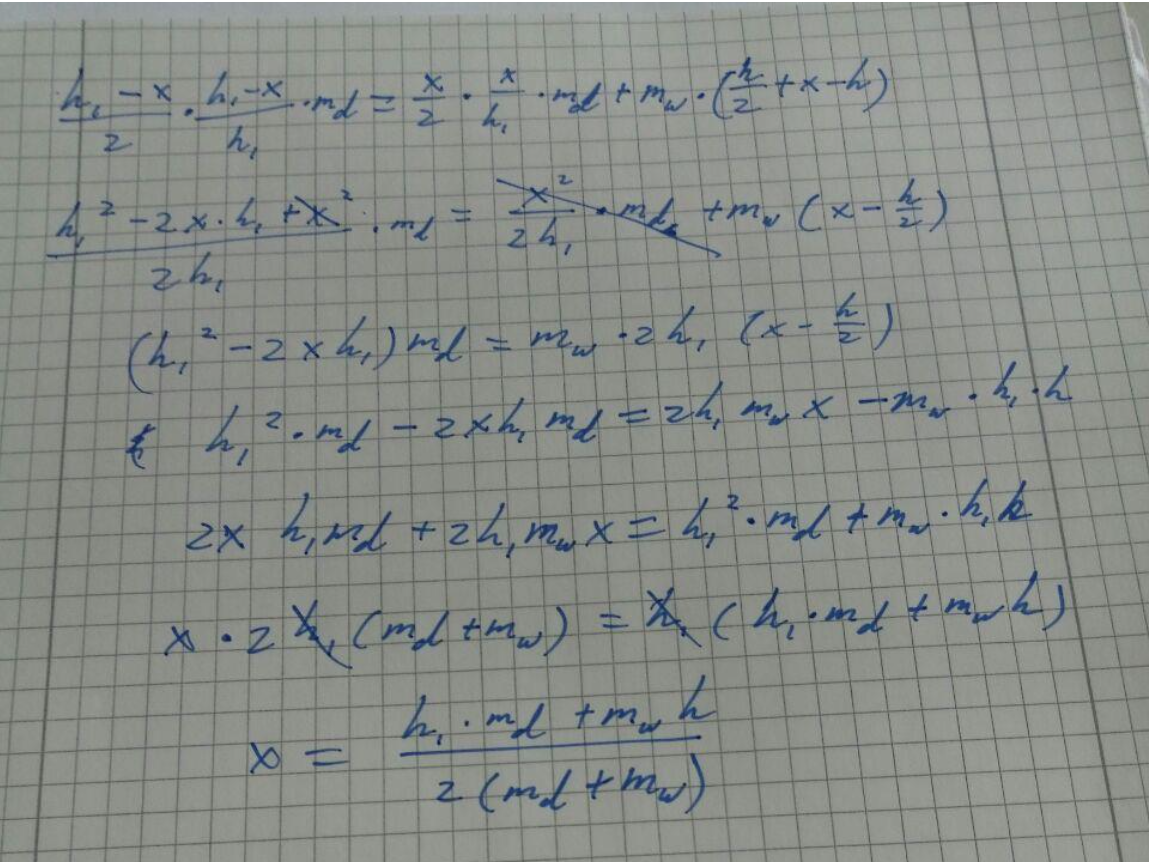 (h₁ - x)/2 · (h₁ - x)/h₁ · md = x/2 · x/h₁ · md + mw · (h/2 + x - h)
(h₁² - 2x · h₁ + x²)/(2h₁) · md = x²/(2h₁) · md + mw (x - h/2)
(h₁² - 2xh₁) md = mw · 2h₁ (x - h/2)
h₁² · md - 2xh₁ md = 2h₁ mw x - mw · h₁ · h
2x h₁md + 2h₁mw x = h₁² · md + mw · h₁h
x · 2h₁(md + mw) = h₁ (h₁ · md + mw h)
x = (h₁ · md + mw h)/(2(md + mw))